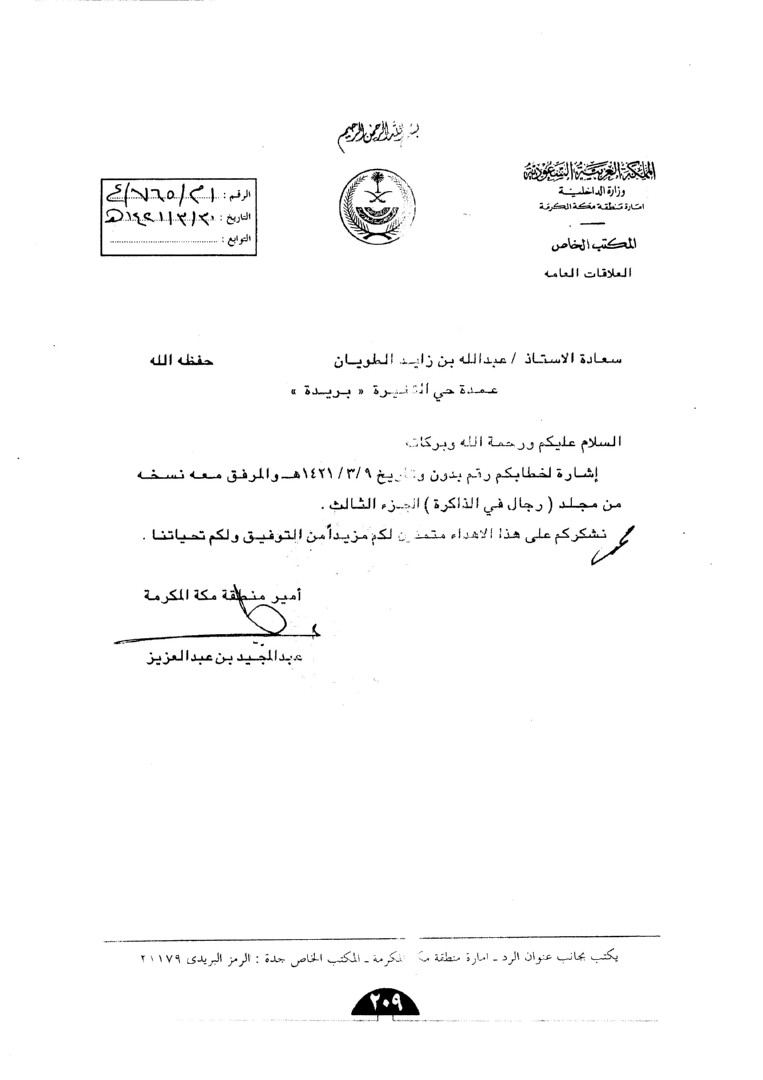 بسم الله الرحمن الرحيم
المملكة العربية السعودية
وزارة الداخلية
امارة منطقة مكة المكرمة
المكتب الخاص
العلاقات العامه
الرقم :
التاريخ : ١٤٢١/٣/٢٠هـ
التوابع :
سعادة الاستاذ / عبدالله بن زايد الطويان حفظه الله
عمدة حي النقيرة « بريدة »
السلام عليكم ورحمة الله وبركاته
إشارة لخطابكم رقم بدون وتاريخ ١٤٢١/٣/٩هـ والمرفق معه نسخه
من مجلد ( رجال في الذاكرة ) الجزء الثالث .
نشكركم على هذا الاهداء متمنين لكم مزيداً من التوفيق ولكم تحياتنا .
أمير منطقة مكة المكرمة
عبدالمجيد بن عبدالعزيز
يكتب بجانب عنوان الرد ـ امارة منطقة مكة المكرمة ـ المكتب الخاص جدة : الرمز البريدى ٢١١٧٩
٢٠٩